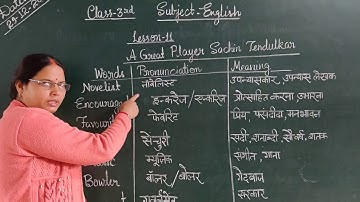 Class-3rd Subject-English
Date-
Lesson-11
A Great Player Sachin Tendulkar
Words Pronunciation Meaning
Novelist नॉवेलिस्ट उपन्यासकार, उपन्यास लेखक
Encourage इनकरेज/एनकरिज प्रोत्साहित करना, उभारना
Favourit फेवरिट प्रिय, पसंदीदा, मनभावन
सेंचुरी सदी, शताब्दी, सौ वर्ष, शतक
म्यूजिक संगीत, गाना
Bowler बॉलर/बोलर गेंदबाज
गवर्नमेंट सरकार